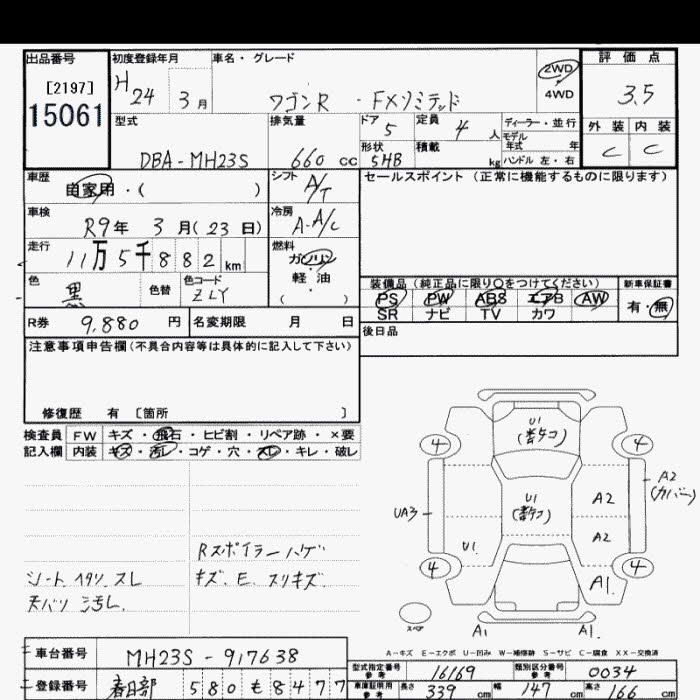 出品番号
[2197]
15061
初度登録年月
H 24 3 月
車名・グレード
ワゴンR ・FXリミテッド
2WD
4WD
評価点
3.5
外装 内装
C C
型式
DBA-MH23S
排気量
660 cc
ドア 5
形状 5HB
定員 4 人
積載 kg
ディーラー・並行
モデル年式 年
ハンドル 左・右
車歴
自家用・( )
シフト A/T
車検
R9年 3 月(23 日)
冷房 A-A/C
走行
11万5千882 km
燃料
ガソリン
軽・油
( )
色 黒
色替
色コード ZLY
R券 9,880 円
名変期限 月 日
セールスポイント(正常に機能するものに限ります)
装備品(純正品に限り○をつけてください)
PS PW ABS エアB AW
SR ナビ TV カワ
新車保証書
有・無
後日品
注意事項申告欄(不具合内容等は具体的に記入して下さい)
修復歴 有 〔箇所 〕
検査員記入欄
FW キズ・飛石・ヒビ割・リペア跡・×要
内装 キズ・汚レ・コゲ・穴・スレ・キレ・破レ
Rスポイラーハゲ
キズ、E、スリキズ
シート ヘタリ、スレ
天バリ ヨゴレ
U1
4 4
U1
A2
A2
(カバー)
UA3
U1
A2
4 4
A1
スペア
A1 A1
A-キズ E-エクボ U-凹み W-補修跡 S-サビ C-腐食 XX-交換済
車台番号 MH23S-917638
登録番号 春日部 580 も 8477
型式指定番号 参考 16169
類別区分番号 参考 0034
車庫証明用 参考 長さ 339 cm 幅 147 cm 高さ 166 cm